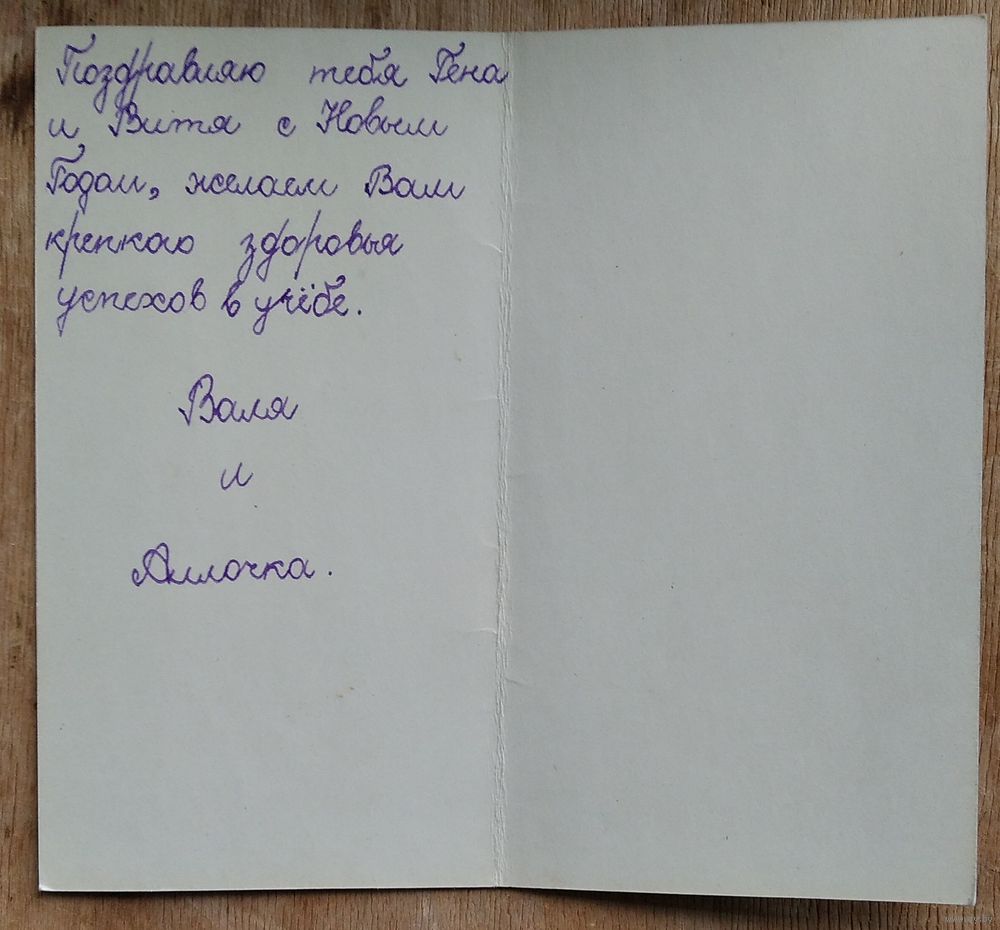 Поздравляю тебя Гена
и Витя с Новым
Годом, желаем Вам
крепкого здоровья
успехов в учёбе.
Валя
и
Аллочка.